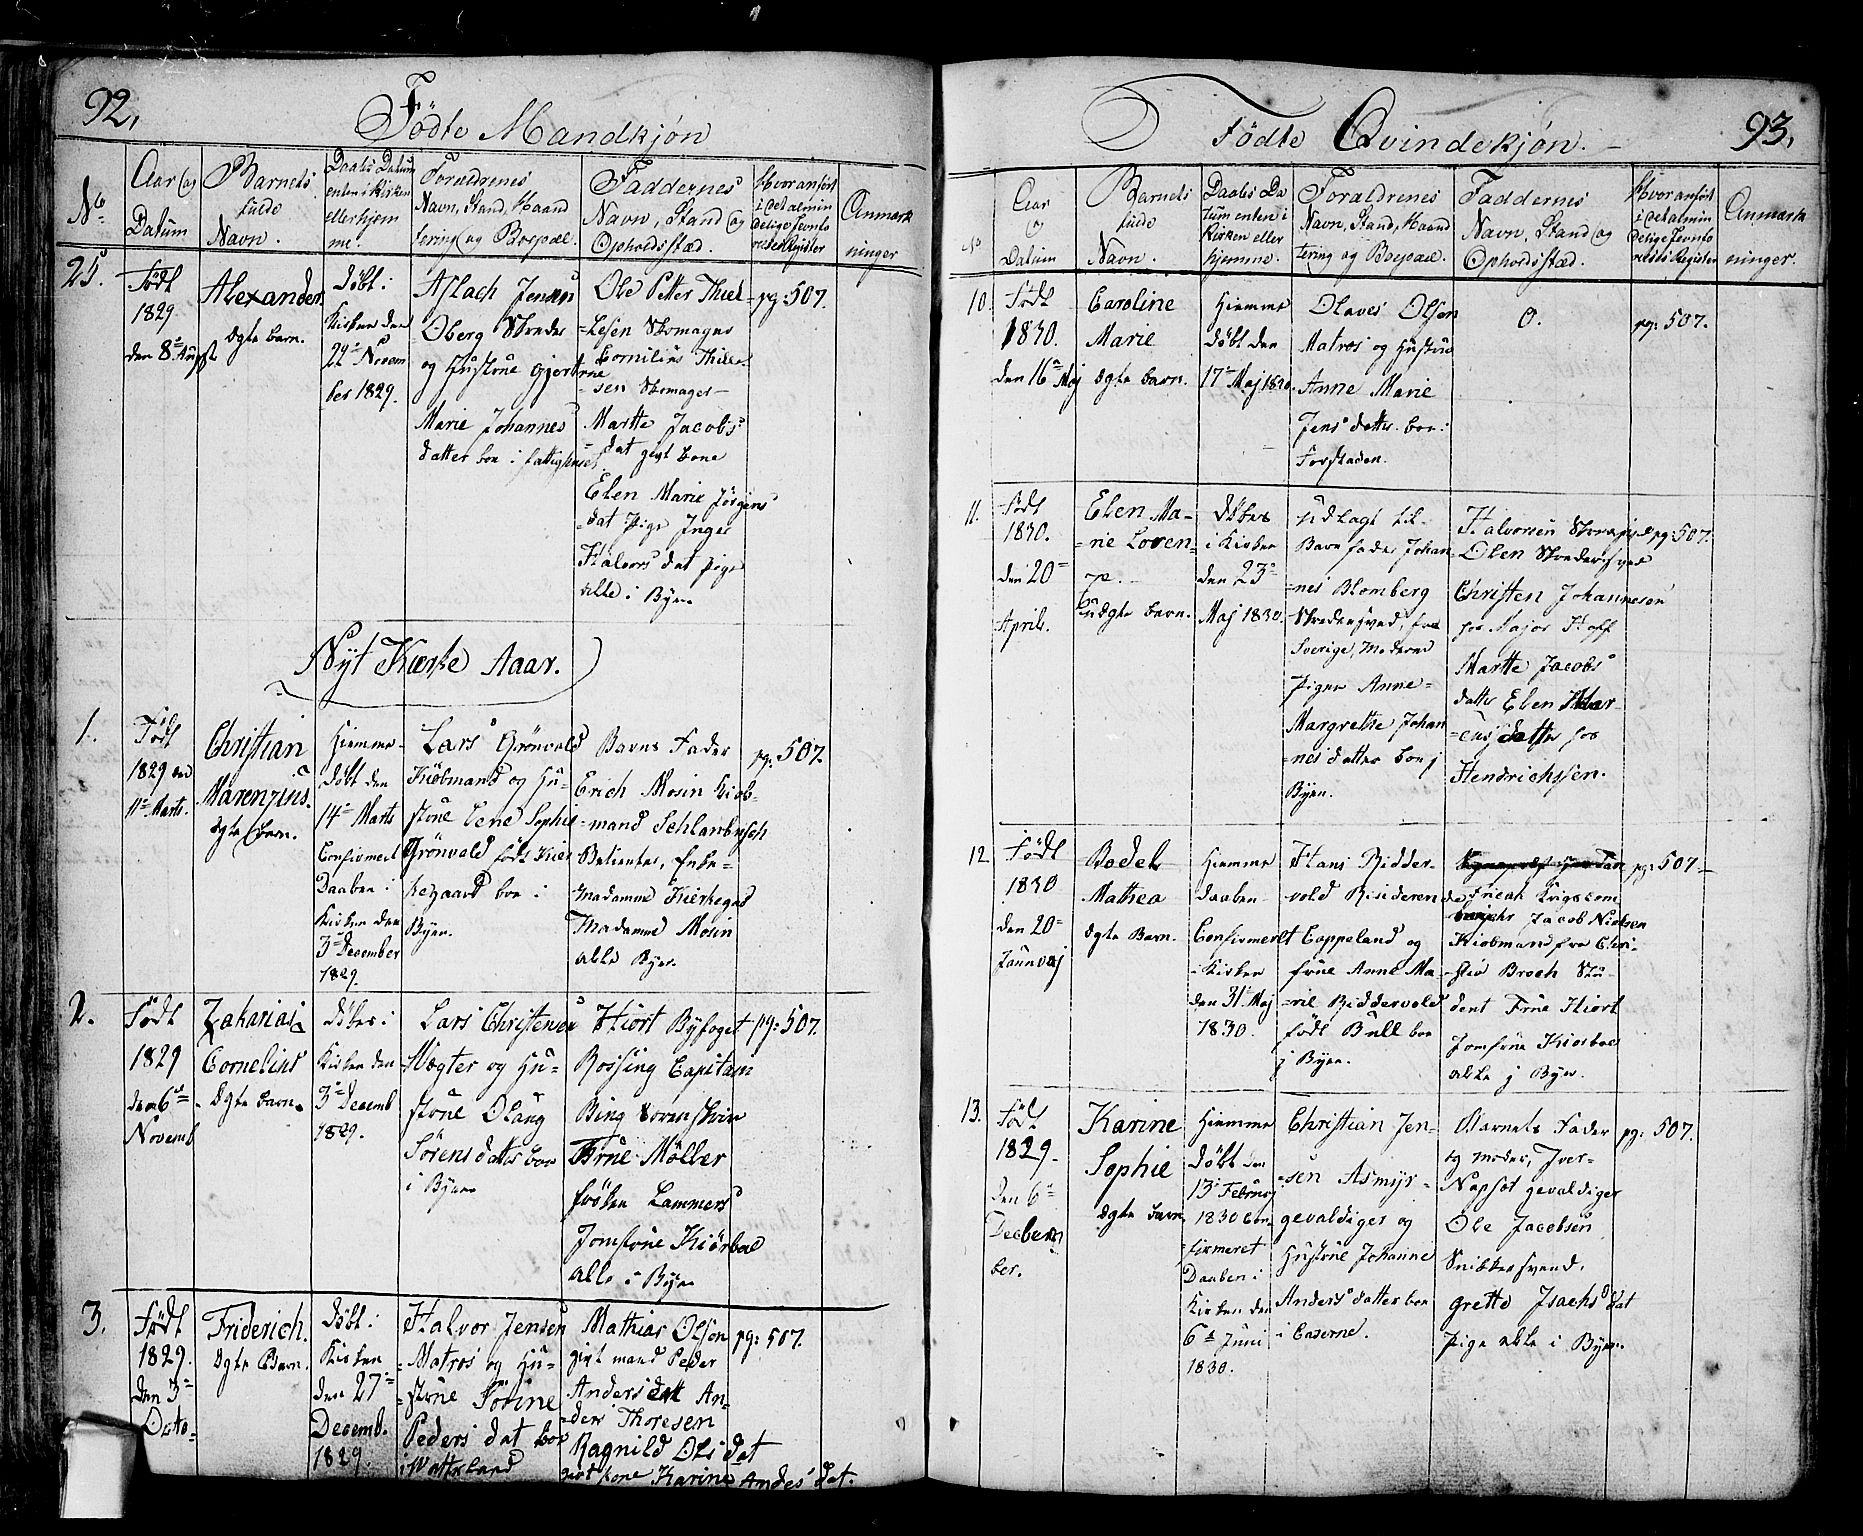 92,
Födte Mandkjøn
No
Aar og
Datum
Barnets
fulde
Navn.
Daabs Datum
enten i Kirken
eller hjem
me.
Forældrenes
Navn, Stand, Haand
tering og Boepæl.
Faddernes
Navn, Stand og
Opholdsstæd.
Hvor anført
i det almin
delige Jevnfø
relses Register
Anmærk
ninger
25.
Födt
1829
den 8de Augst
Alexander
ægte barn.
Döbt i
Kirken den
22de Novem
ber 1829.
Aslach Jensen
Oberg Skreder
og Hustrue Gjert
Marie Johannes
datter boe i fattighuset
Ole Petter Thiel
=lesen Skomager
Cornilius Thille
sen Skomager
Marthe Jacobs
dat givt kone
Elen Marie Jörgens
=dat Pige Inger
Halvors dat pige
alle i Byen
pg: 507.
Nyt Kirke Aaar.
1.
Födt
1829 den
11te Marts.
Christian
Marenzius.
ægte barn.
Hiemme
döbt den
14de Marts
Confirmert
Daaben i
Kirken den
3de December
1829.
Lars Grönvold
Kiöbmand og Hu=
strue Lene Sophie
Grönvold födt Kier
kegaard boe i
Byen.
Barns Fader
Erich Mosin Kiöb=
=mand Schlanbusch
Betienter, Enke=
madamme Kierkegrd
Madamme Mosin
alle Byen
pg: 507.
2.
Födt
1829
den 6te
Novemb
Zakarias
Cornelius
ægte barn.
döbt i
Kirken den
3de Decemb
1829.
Lars Christensen
Vægter og Hu=
strue Olaug
Sörens datter boe
i Byen
Hiort Byfoget
Rossing Capitain
Bing Sorenskriver
Frue Möller
fröken Lammers
Jomfrue Kiörboe
alle i Byen
pg: 507.
3.
Födt
1829.
den 3de
Octo=
Friderich.
ægte Barn.
Döbt i
Kirken
den 27de
Decemb.
1829.
Halvor Jensen
Matros og Hu=
=strue Torine
Peders dat boe
i Watterland
Mathias Olsen
givt mand Peder
Anders dat An=
=ders Thoresen
Ragnild Ols dat
givt kone Karine Andes dat.
pg: 507.
93.
Födte Qvindekjøn.
No
Aar
og
Datum
Barnets
fulde
Navn.
Daabs Da
tum enten i
Kirken eller
hjemme.
Forældrenes
Navn, Stand, Haand
tering og Boepæl.
Faddernes
Navn, Stand og
Opholdsstæd.
Hvor anført
i det almin
delige Jevnfø
relses Register
Anmærk
ninger.
10.
Födt
1830.
den 16de Maj
Caroline
Marie
ægte barn.
Hiemme
döbt den
17de Maj 1830.
Olaves Olsen
Matros og Hustrue
Anne Marie
Jens datter boe i
Forstaden.
0.
pg: 507.
11.
Födt
1830.
den 20de
April.
Elen Ma=
=rie Loven=
uægte barn.
döbes
i Kirken
den 23de
Maj 1830.
Udlagt til
Barnfader Johan
=nes Blomberg
Skredersvend, fra
Sverige, Moderen
Pigen Anne
Margrethe Johan
nes datter boe j
Byen.
Halvorsen
Olsen Skredersvend
Christen Johannesen
hos Major Hoff
Marthe Jacobs
datter Elen Hal
datter hos
Hendrichssen.
pg: 507.
12
Födt
1830
den 20de
Januarj
Bodel
Mathea
ægte Barn.
Hiemme
daaben
Confirmert
i Kirken
den 31te Maj
1830.
Hans Ridder=
vold Resideren de
Cappeland og
frue Anne Ma
=rie Riddervold
födt Bull boe
j Byen.
Jacob Nielsen
Kiöbmand fra Chri=
=stia Broch Stu=
dent Frue Hiort
Jomfrue Kiörboe
alle j Byen
pg: 507.
13.
Födt
1829
den 6te
Decbem
ber.
Karine
Sophie
ægte barn
Hiemme
Döbt den
13de Februarj
1830 Con
firmeret
Daaben i
Kirken den
6te Juni
1830.
Christian Jen=
=sen Asmyr=
gevaldiger og
Hustrue Johanne
Anders datter boe
i Caserne.
Barnets Fader
og moder, Iver
Napsöt gevaldiger
Ole Jacobsen
Snikkersvend,
grette Isachs dat
Pige alle i Byen.
pg: 507.